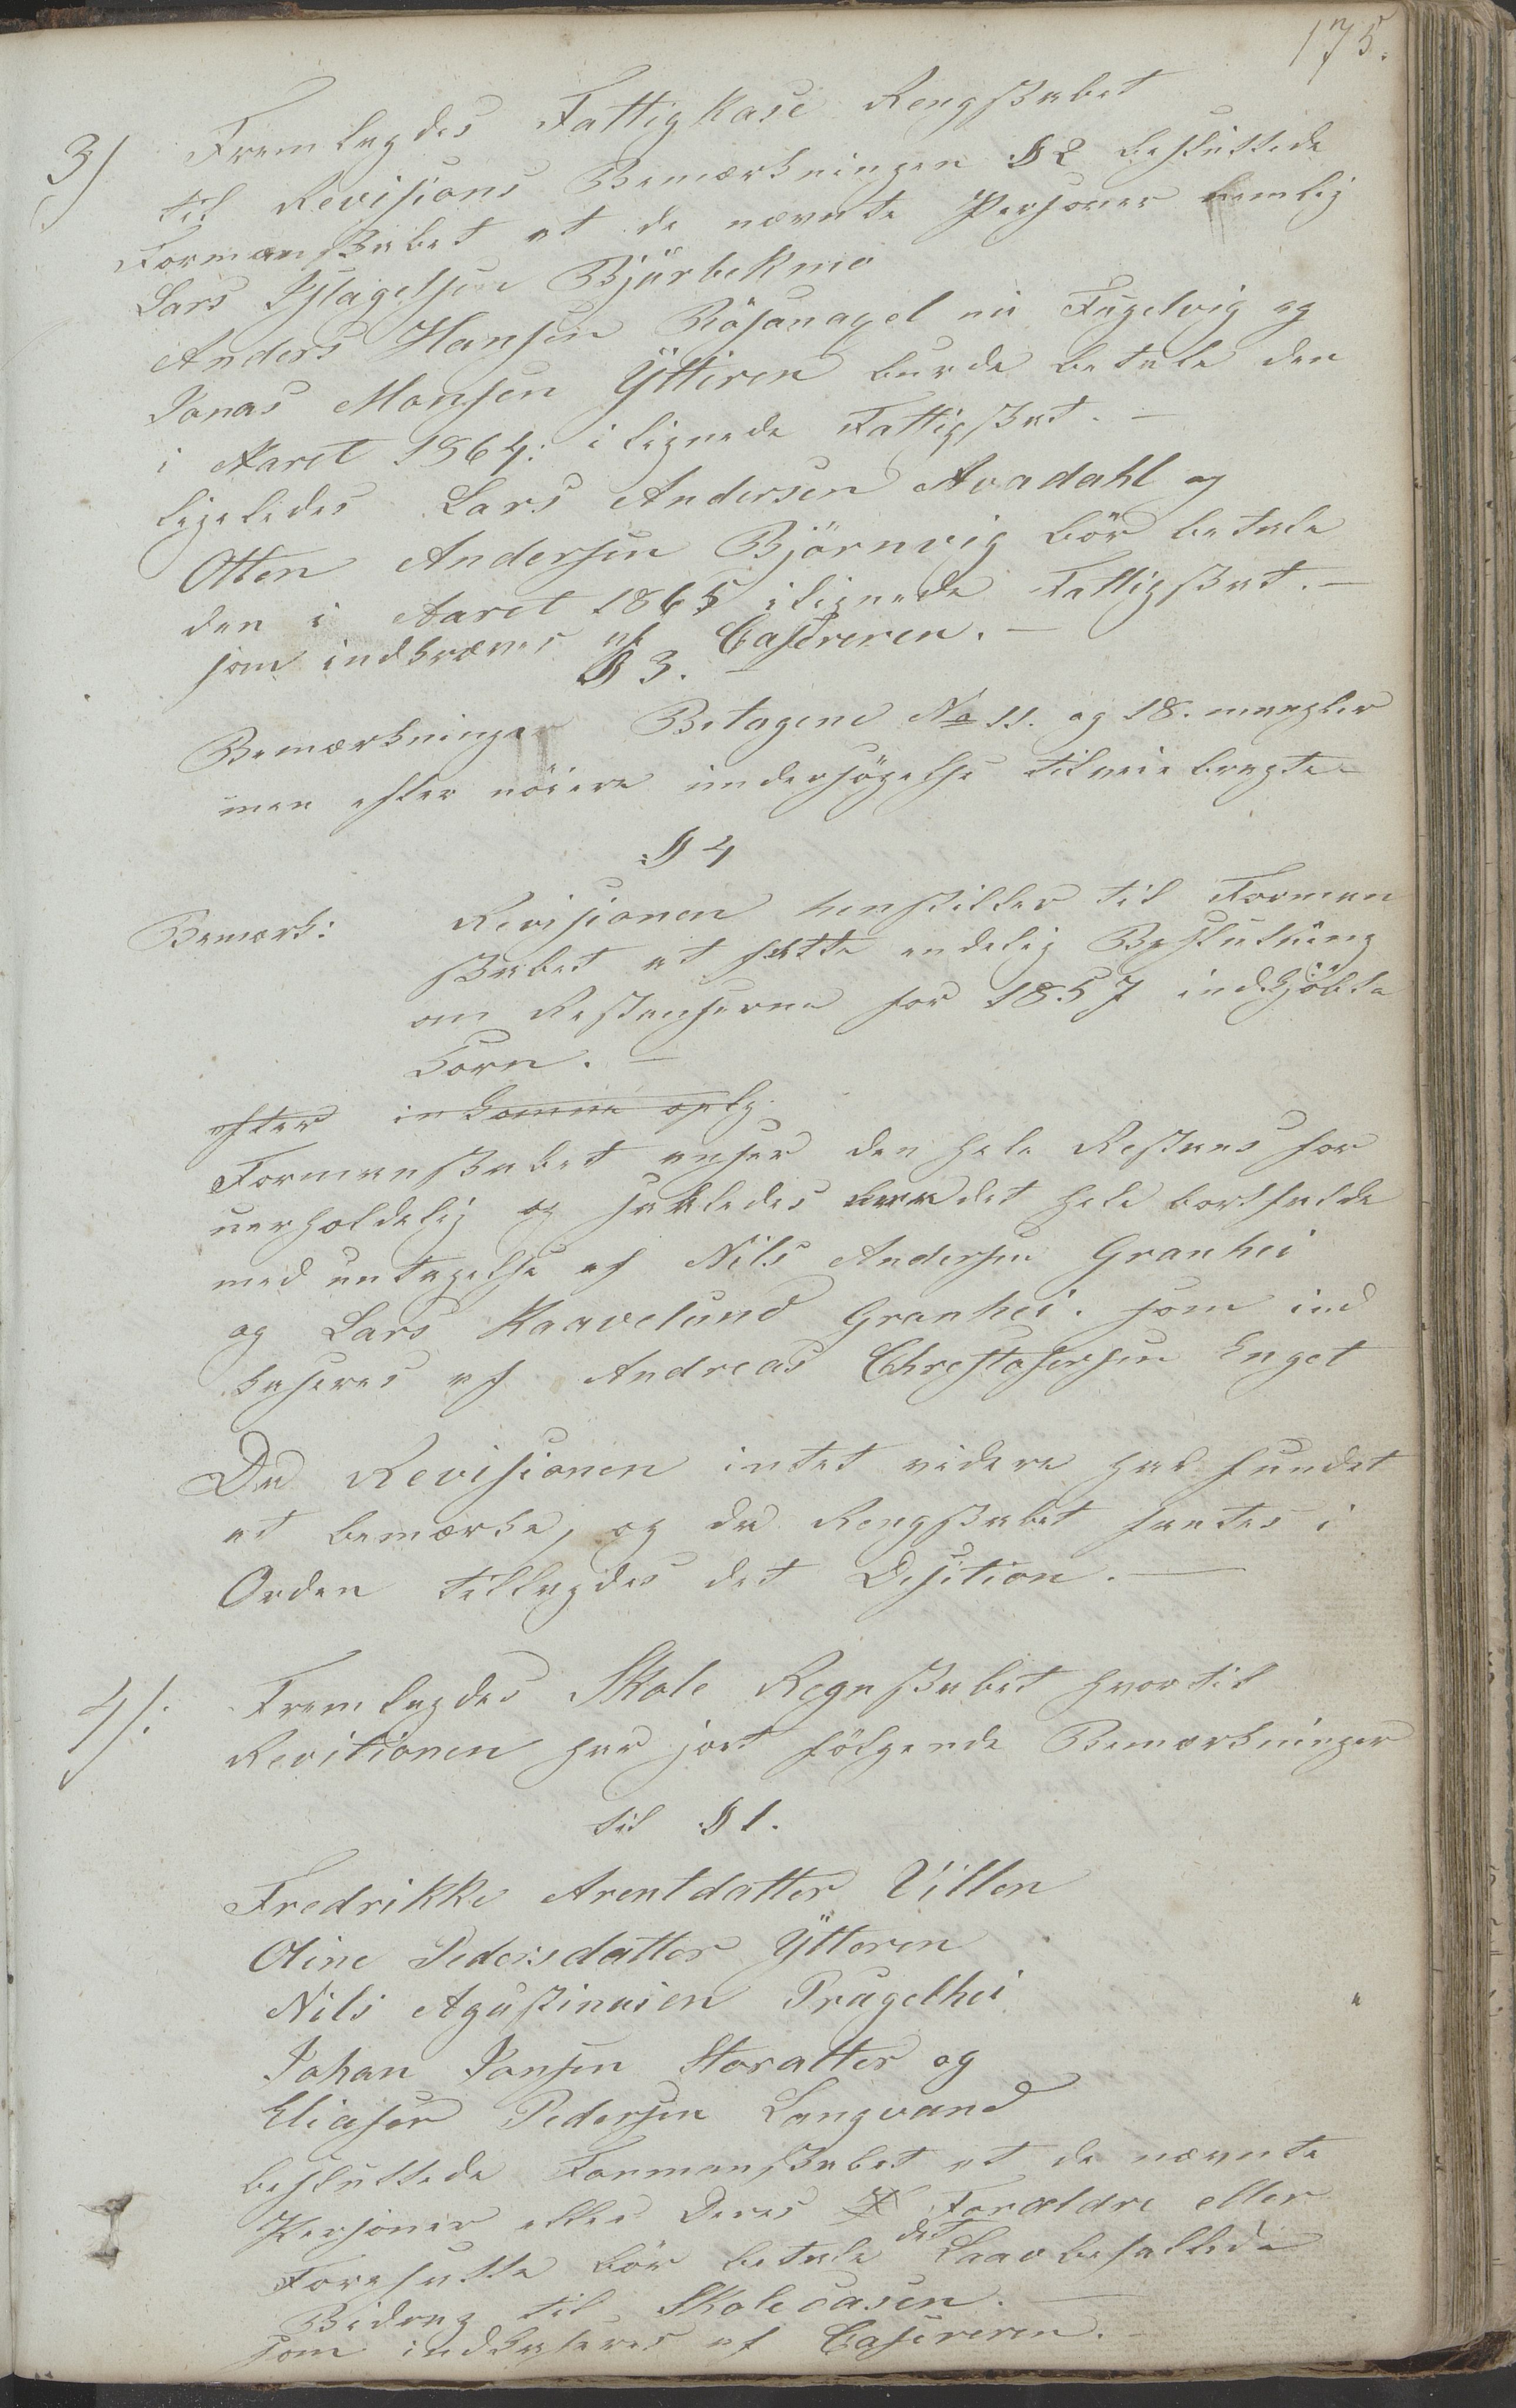 175.
3) Fremlagdes Fattigkase Rengskabet
til Revisions Bemærkningen §2 besluttede
Formanskabet at de nævnte Personer nemlig
Lars Islagelsen Bjürbekmo
Anders Hansen Rösanagel nu Fugelvig og
Jonas Monsen Ÿttiren burde betale den
i Aaret 1864: ilignede Fattigskat. —
ligeledes Lars Andersen Avadahl og
Otten Andersen Björnvig bör betale
den i Aaret 1865 ilignede Fattigskat. —
som indkræves af Casereren. —
§ 3. —
Bemærkninger Betagene No 11. og 18. mangler
men efter nöiere undersögelse tilveiebragte
§ 4
Bemærk: Revisionen henstiller til Forman
skabet at fatte endelig Beslutning
om Restanserne for 1857 indkjöbte
Korn. —
efter inkomne oplg.
Formanskabet anser den hele Restans for
uerholdelig og saaledes det hele bortfalde
med untagelse af Nils Andersen Granhei
og Lars Kaavelund Granhei. som ind
kaseres af Andreas Christofersen Enget
Da Revisionen intet videre har fundet
at bemærke, og da Rengskabet fantes i
Orden tillagdes det Desition. —
4/: Fremlagdes Skole Regnskabet hvortil
Revitionen har jort fölgende Bemærkninger
til § 1.
Fredrikke Arentdatter Villen
Oline Pedersdatter Ÿtteren
Nils Agustinusen Prugelhei
Johan Jonsen Storatter og
Eliaser Pedersen Langvand
besluttede Formanskabet at de nævnte
Personer eller Deres Foræltdre eller
Foresatte bör betale det Laavbefallede
Bidrag til Skolecasen. —
som indkaseres af Casereren. —